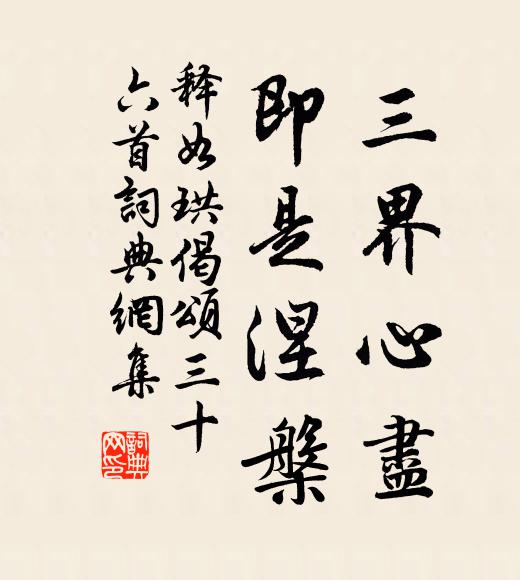 三界心盡
即是涅槃
释如珙偈頌三十
六首詞典網集
詞典网印